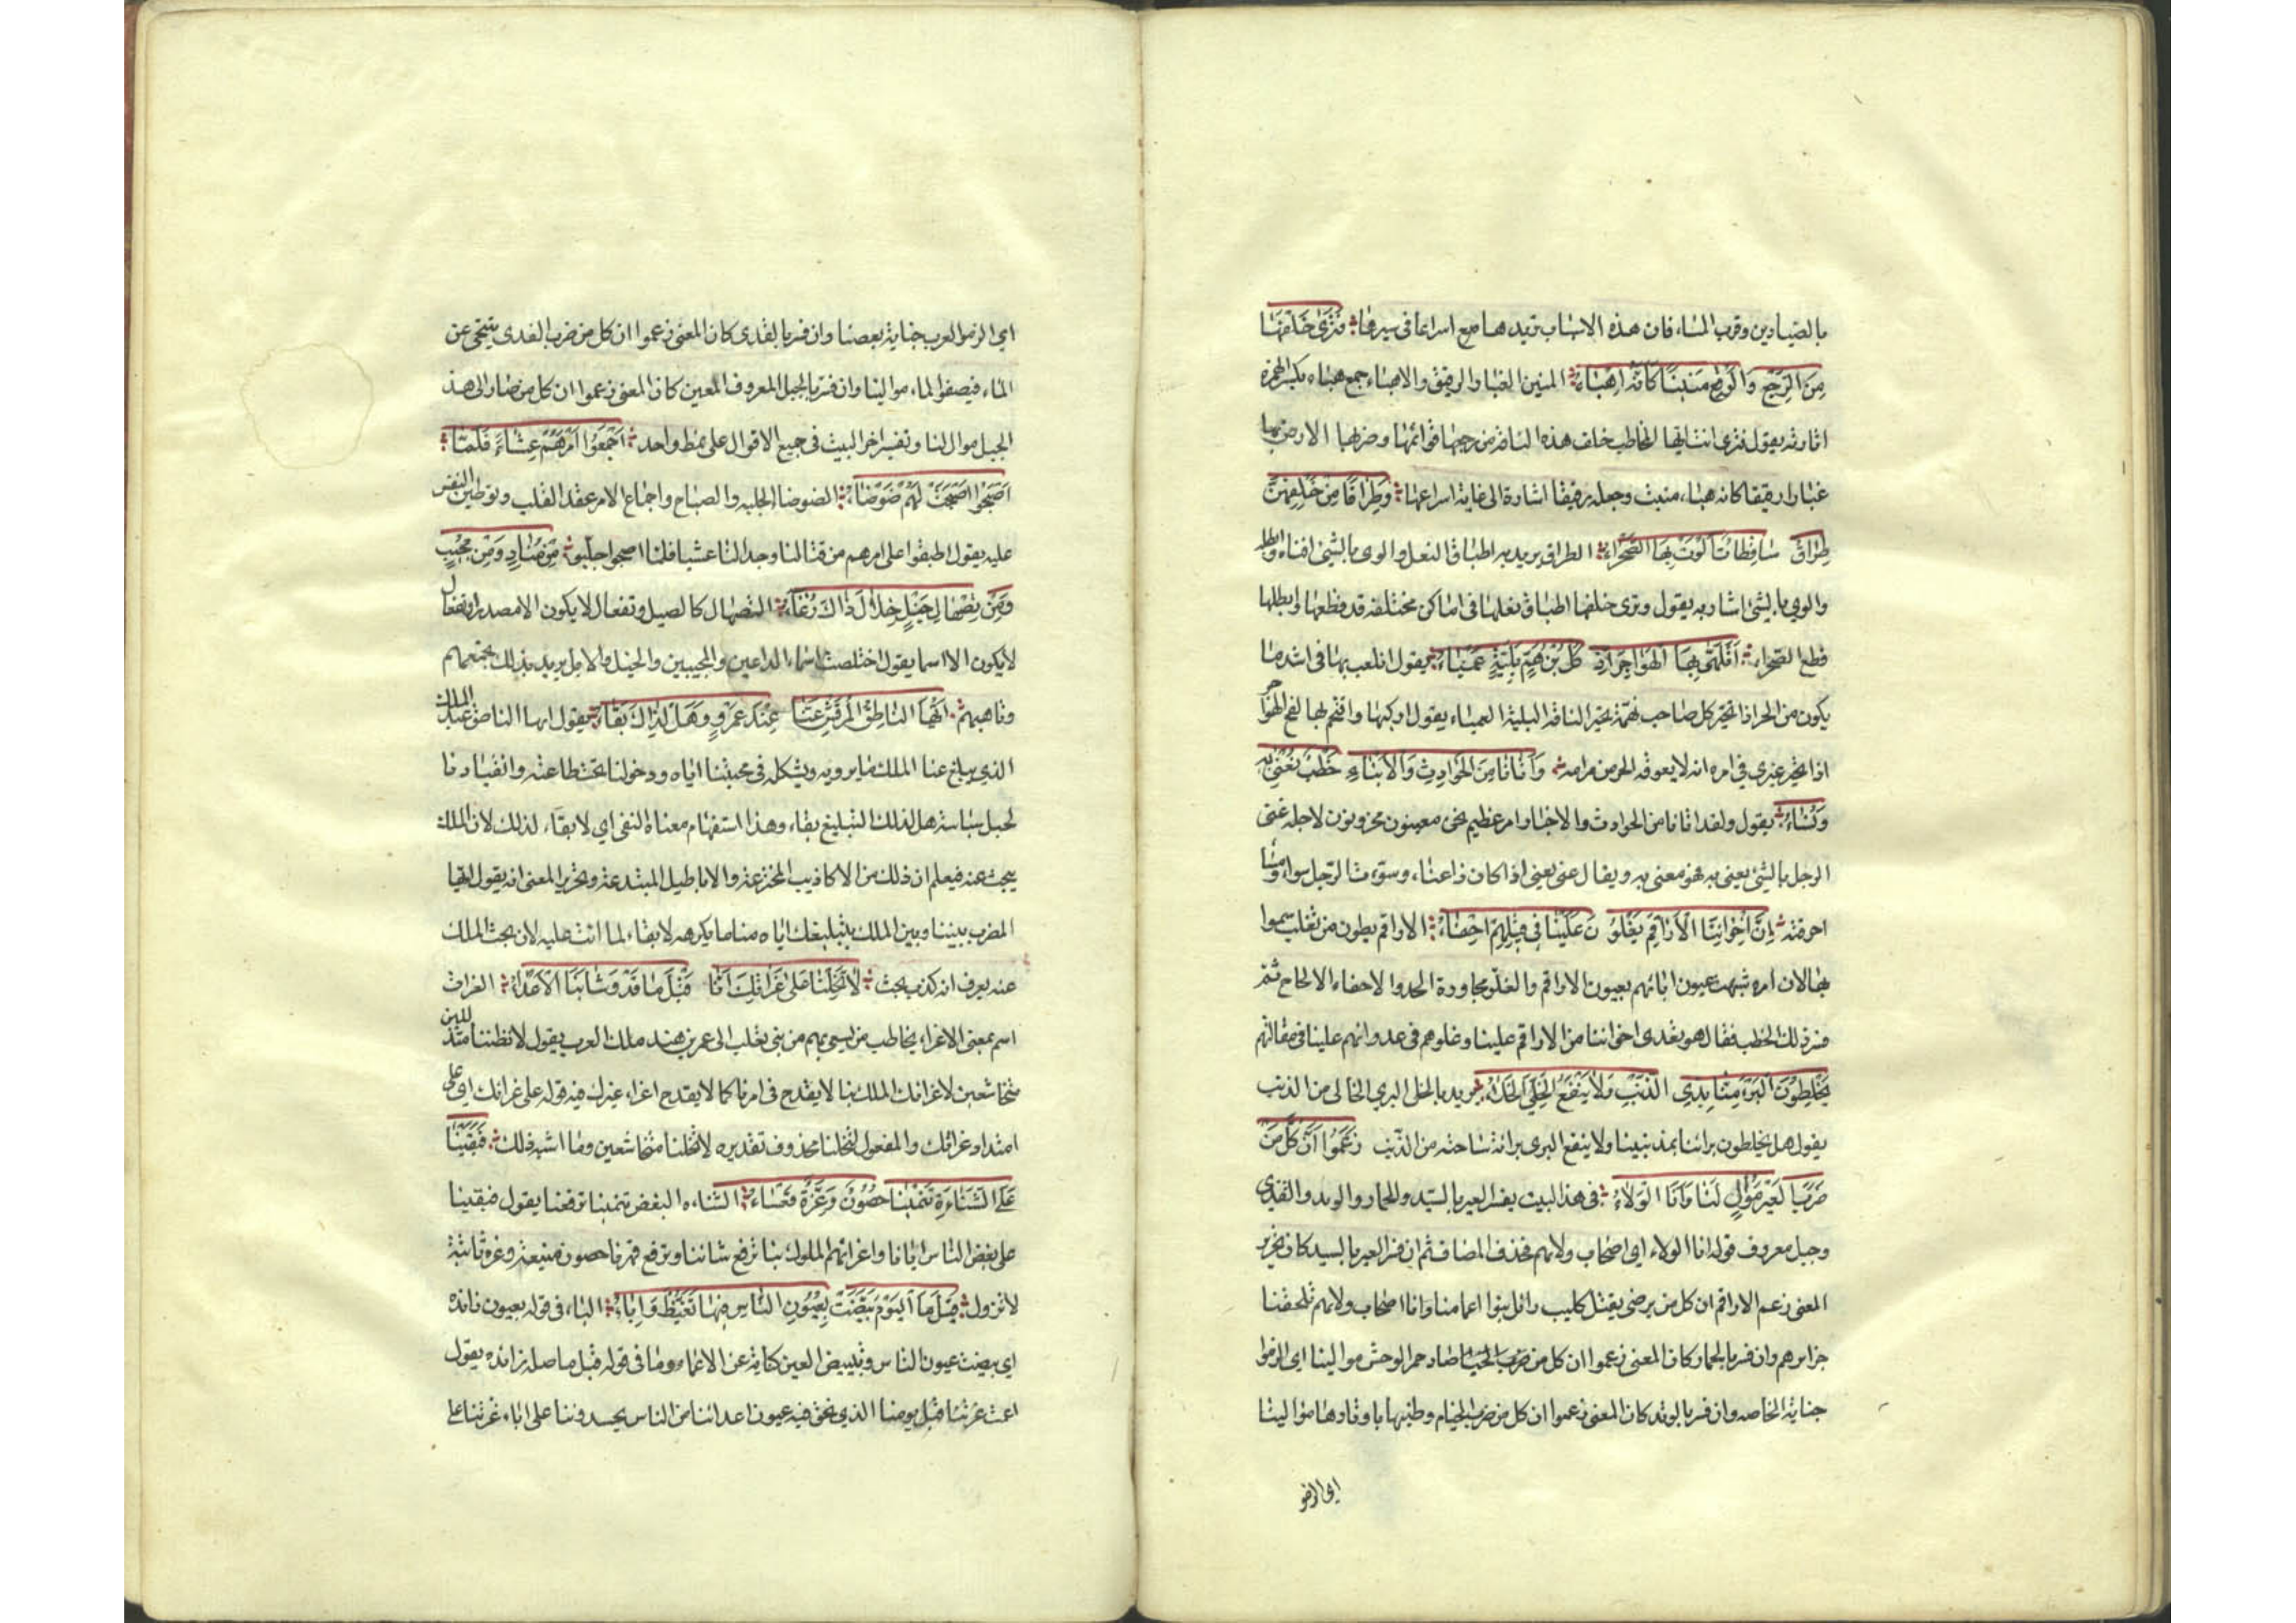 بالصيادين وقرب المساء فان هذه الاسباب تزيدها مع اسراعا في سيرها فَتَرَى خَلْفَهَا
مِنَ الرَّجْعِ وَالْوَقْعِ مَنِينًا كَأَنَّهُ اِهْبَاءُ المنين الغبار الرقيق والاهباء جمع هباء بكسر الهمزة
اثارته يقول فترى انت ايها المخاطب خلف هذه الناقة من رجعها قوائمها وضربها الارض بها
غبارا رقيقا كانه هباء منبث وجعله رقيقا اشارة الى غاية اسراعها وَطِرَاقًا مِنْ خَلْفِهِنَّ
طِرَاقٌ سَاقِطَاتٌ اَلْوَتْ بِهَا الصَّحْرَاءُ الطراق يريد به اطباق النعل والوى بالشئ افناه وابطله
والوى بالشئ اشار به يقول وترى خلفها اطباق نعلها في اماكن مختلفة قد قطعها وابطلها
قطع الصحراء اَتَلَهَّى بِهَا الْهَوَاجِرَ اِذْ كُلُّ ابْنِ هَمٍّ بَلِيَّةٌ عَمْيَاءُ يقول اتلعب بها في اشد ما
يكون من الحر اذا تحير كل صاحب همة تحير الناقة البلية العمياء يقول اركبها واقتحم بها لفح الهواجر
اذا تحير غيري في امره انه لا يعوقه الحر من مرامه وَاَتَانَا مِنَ الْحَوَادِثِ وَالْاَنْبَاءِ خَطْبٌ نُعْنَى بِهِ
وَنُسَاءُ يقول ولقد اتانا من الحوادث والاخبار امر عظيم نحن معنيون محزونون لاجله عنى
الرجل بالشئ يعنى به فهو معنى به ويقال عنى يعنى اذا كان ذا عناء وسؤت الرجل سواء ومساءة
احزنته اِنَّ اِخْوَانَنَا الْاَرَاقِمَ يَغْلُونَ عَلَيْنَا فِي قِيلِهِمْ اِحْفَاءُ الاراقم بطون من تغلب سموا
بها لان امراة شبهت عيون ابائهم بعيون الاراقم والغلو مجاوزة الحد والاحفاء الالحاح ثم
فسر ذلك الخطب فقال هو تعدى اخواننا من الاراقم علينا وغلوهم في عدوانهم علينا في مقالتهم
يَخْلِطُونَ الْبَرِيءَ مِنَّا بِذِي الذَّنْبِ وَلَا يَنْفَعُ الْخَلِيَّ الْخَلَاءُ يريد بالخلى البرى الخالى من الذنب
يقول هل يخلطون براءنا بمذنبينا ولا ينفع البرى براءة ساحته من الذنب زَعَمُوا اَنَّ كُلَّ مَنْ
ضَرَبَ الْعَيْرَ مَوَالٍ لَنَا وَاَنَّا الْوَلَاءُ في هذا البيت يفسر العير بالسيد والحمار والوتد والقذى
وجبل معروف قوله انا الولاء اي اصحاب ولائهم فحذف المضاف ثم ان فسر العير بالسيد كان تحرير
المعنى زعم الاراقم ان كل من يرضى بقتل كليب وائل بنوا اعمامنا وانا اصحاب ولائهم تلحقنا
جرائرهم وان فسر بالحمار كان المعنى زعموا ان كل من صاد حمر الوحش موالينا اي الزموا
جناية الخاصة وان فسر بالوتد كان المعنى زعموا ان كل من ضرب الخيام وطنبها باوتادها موالينا
اي الزمو
اي الزموا العرب جناية بعضنا وان فسر بالقذى كان المعنى زعموا ان كل من ضرب القذى يتنحى عن
الماء فيصفوا الماء موالينا وان فسر بالجبل المعروف المعين كان المعنى زعموا ان كل من صار الى هذا
الجبل موال لنا وتفسير اخر البيت في جميع الاقوال على نمط واحد اَجْمَعُوا اَمْرَهُمْ عِشَاءً فَلَمَّا
اَصْبَحُوا اَصْبَحَتْ لَهُمْ ضَوْضَاءُ الضوضا الجلبة والصياح واجماع الامر عقد القلب وتوطين النفس
عليه يقول اطبقوا على امرهم من قتالنا وجدالنا عشيا فلما اصبحوا اجلبوا مِنْ مُنَادٍ وَمِنْ مُجِيبٍ
وَمِنْ تَصْهَالِ خَيْلٍ خِلَالَ ذَاكَ رُغَاءُ التصهال كالصهيل وتفعال لا يكون الا مصدرا وتفعال
لا يكون الا اسما يقول اختلطت اسماء الداعين والمجيبين والخيل والابل يريد بذلك تجمعهم
وتاهبهم اَيُّهَا النَّاطِقُ الْمُرَقِّشُ عَنَّا عِنْدَ عَمْرٍو وَهَلْ لِذَاكَ بَقَاءُ يقول ايها الناطق عند الملك
الذي يبلغ عنا الملك ما يريبه ويشككه في محبتنا اياه ودخولنا تحت طاعته وانقيادنا
لحبل سياسته هل لذلك التبليغ بقاء وهذا استفهام معناه النفى اي لا بقاء لذلك لان الملك
يبحث عنه فيعلم ان ذلك من الاكاذيب المخترعة والاباطيل المبتدعة وتحرير المعنى انه يقول ايها
المضرب بيننا وبين الملك بتبليغك اياه منا ما يكرهه لا بقاء لما انت عليه لان بحث الملك
عنه يعرف انه كذب بحت لَا تَخَلْنَا عَلَى غَرَاتِكَ اِنَّا قَبْلَ مَا قَدْ وَشَى بِنَا الْاَعْدَاءُ الغراة
اسم بمعنى الاغراء يخاطب من يسعى بهم من بنى تغلب الى عمرو بن هند ملك العرب يقول لا تظننا متذللين
متخاشعين لاغرائك الملك بنا لا يقدح في امرنا كما لا يقدح اغراء غيرك فيه قوله على غراتك اي على
امتداد غراتك والمفعول لتخلنا محذوف تقديره لا تخلنا متخاشعين وما اشبه ذلك فَبَقِينَا
عَلَى الشَّنَاءَةِ تَنْمِينَا حُصُونٌ وَعِزَّةٌ قَعْسَاءُ الشناءه البغض تنمينا ترفعنا يقول فبقينا
على بغض الناس ايانا واغرائهم الملوك بنا ترفع شاننا وترفع قدرنا حصون منيعة وعزة ثابتة
لا تزول قَبْلَ مَا الْيَوْمَ بَيَّضَتْ بِعُيُونِ النَّاسِ فِيهَا تَغَيُّظٌ وَاِبَاءُ الباء في قوله بعيون زائده
اي بيضت عيون الناس وتبييض العين كناية عن الاعماء وما في قوله قبل ما صلة زائده يقول
اعمت عزتنا قبل يومنا الذي نحن فيه عيون اعدائنا من الناس يحسدوننا على اباء عزتنا على